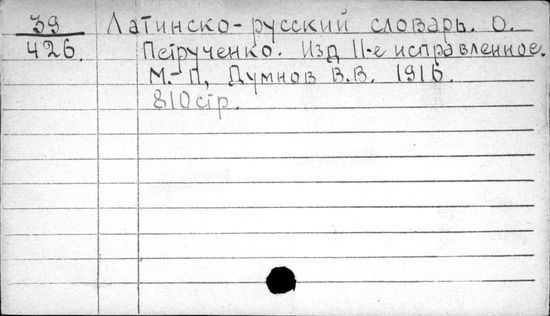 39 Латинско-русский словарь. О.
426. Петрученко. Изд 11-е исправленное.
М.-П, Думнов В.В. 1916.
810стр.